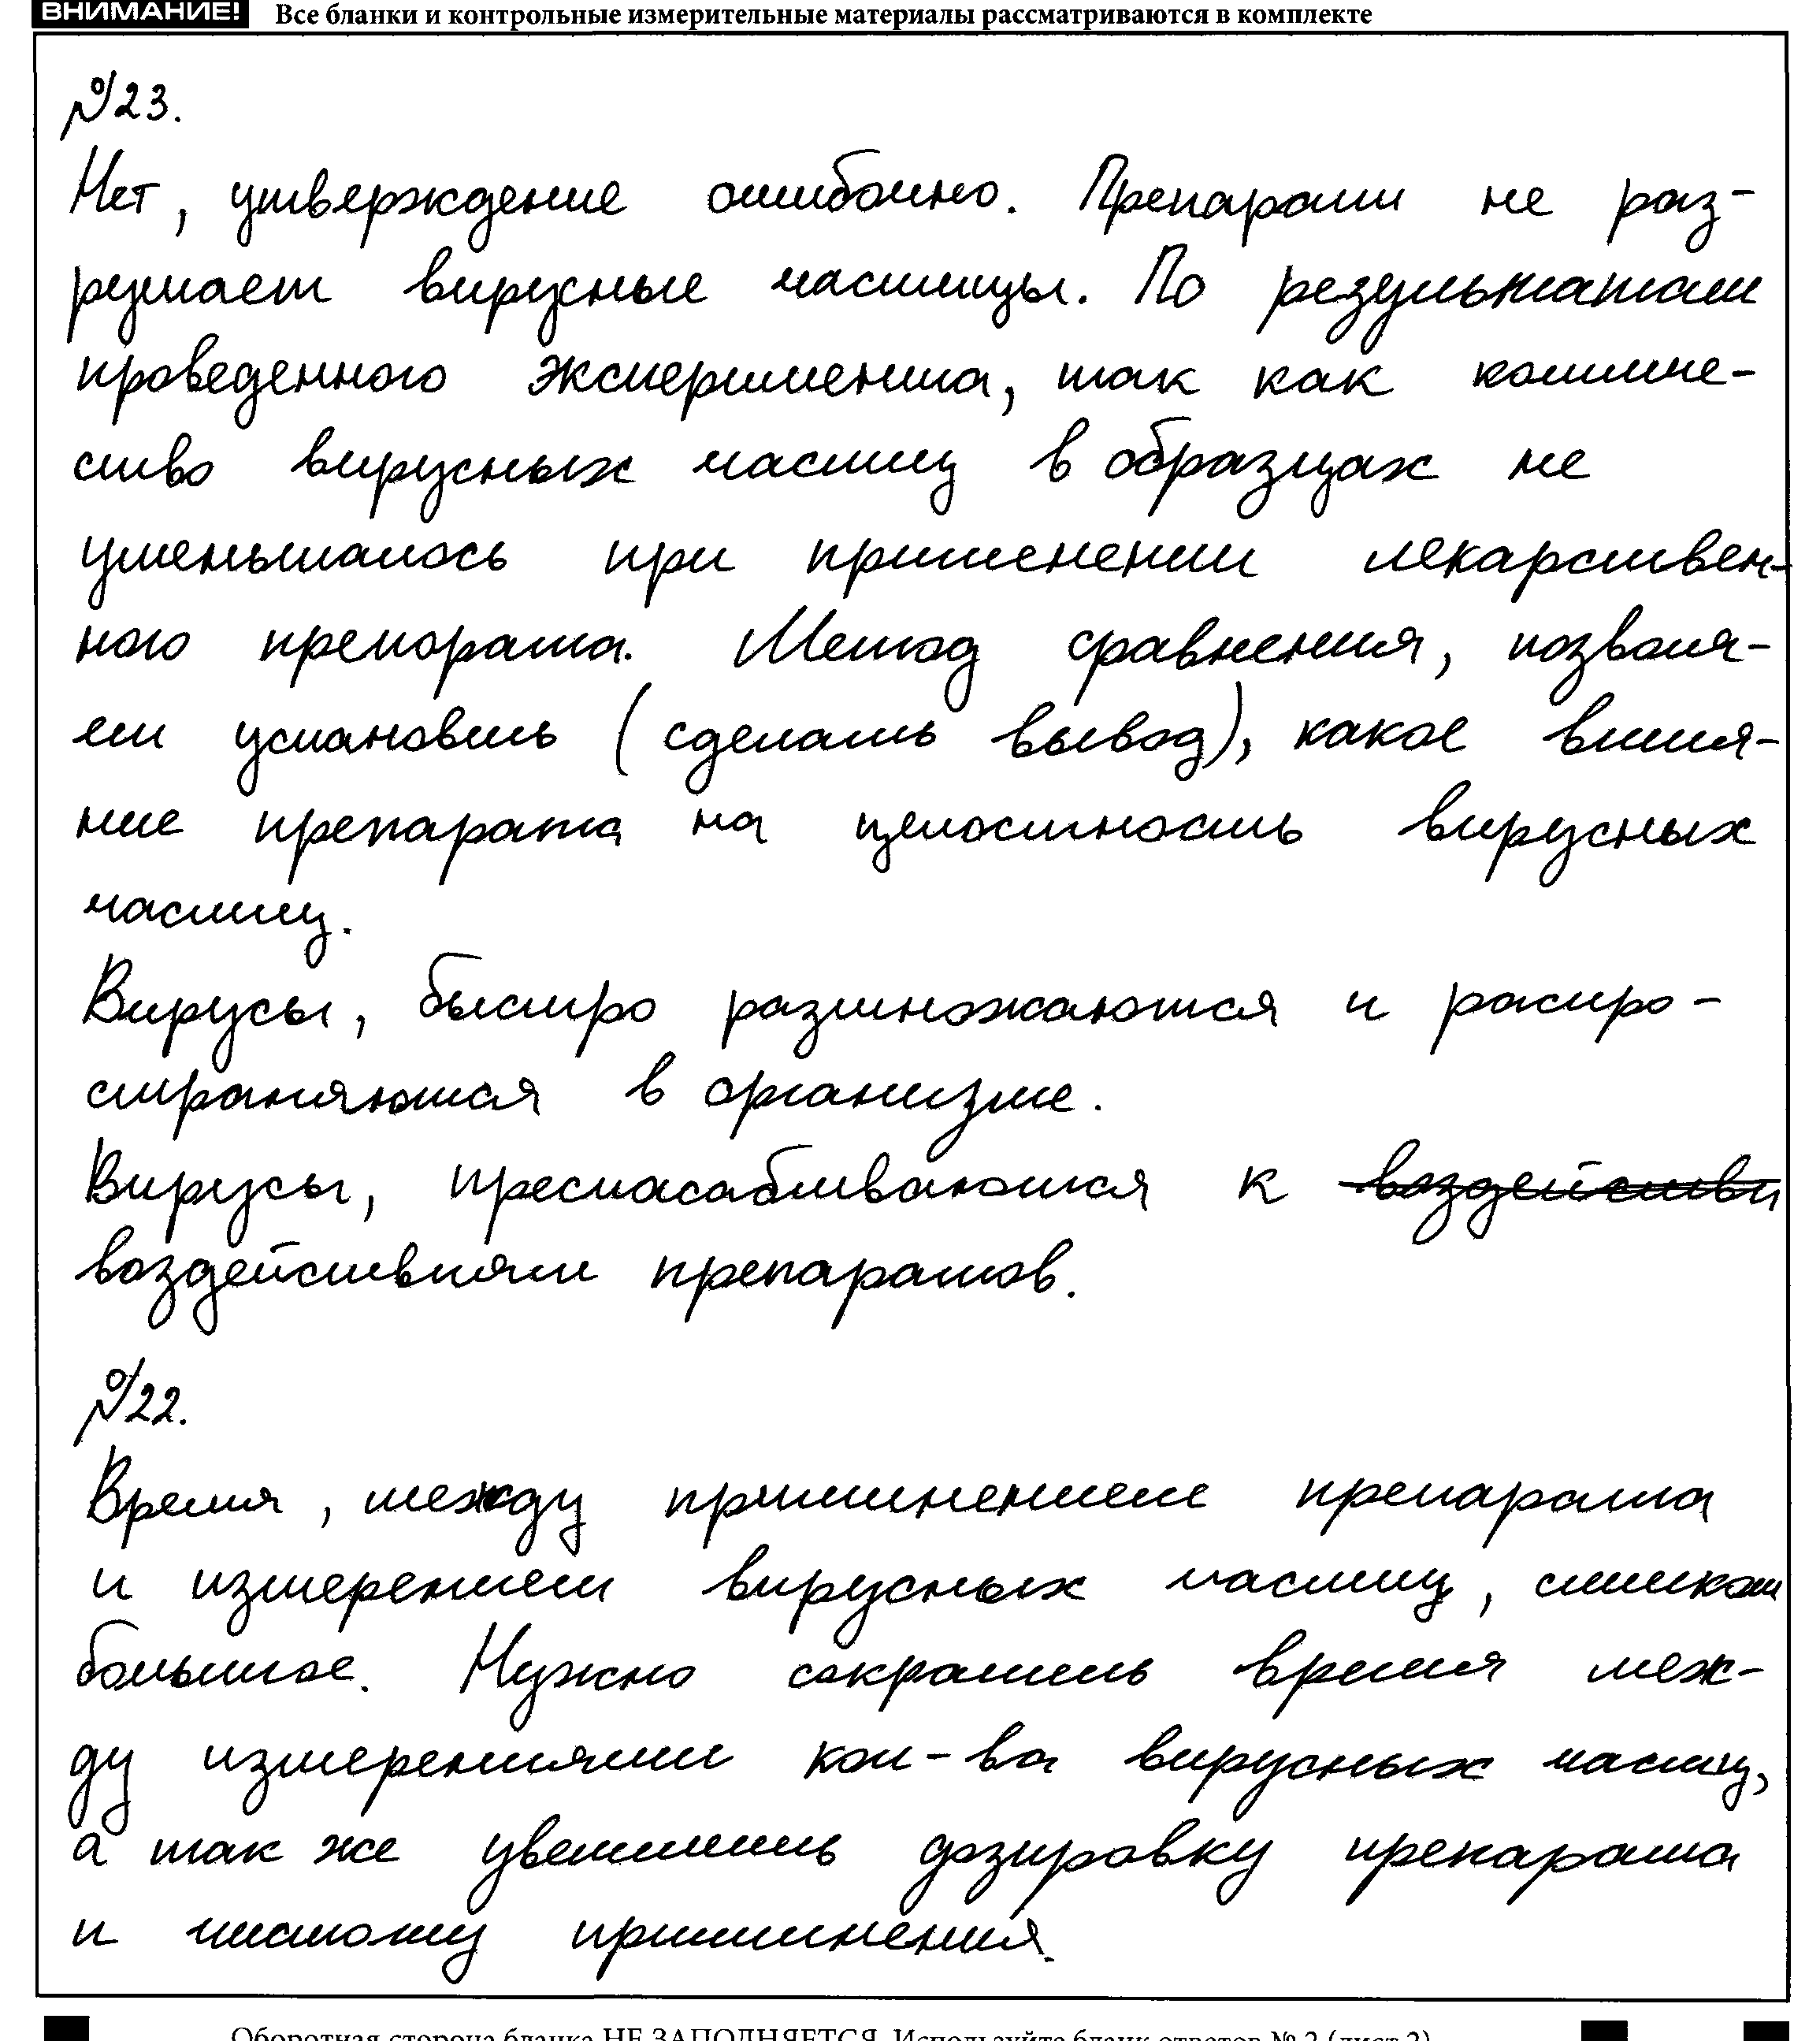 ВНИМАНИЕ! Все бланки и контрольные измерительные материалы рассматриваются в комплекте
№23.
Нет, утверждение ошибочно. Препараты не раз-
рушает вирусные частицы. По результатам
проведенного эксперимента, так как количе-
ство вирусных частиц в образцах не
уменьшалось при применении лекарствен-
ного препората. Метод сравнения, позволя-
ет установить (сделать вывод), какое влия-
ние препарата на целостность вирусных
частиц.
Вирусы, быстро размножаются и распро-
страняются в организме.
Вирусы, преспасабливаются к воздействи
воздействиям препаратов.
№22.
Время, между приминением препарата
и измерением вирусных частиц, слишком
большое. Нужно сократить время меж-
ду измерениями кол-ва вирусных частиц,
а так же увеличить дозировку препарата
и частоту приминения.
Оборотная сторона бланка НЕ ЗАПОЛНЯЕТСЯ. Используйте бланк ответов № 2 (лист 2)